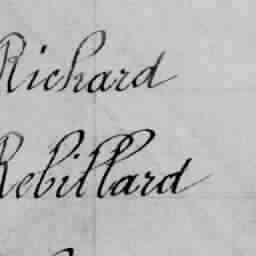 Richard
Rebillard